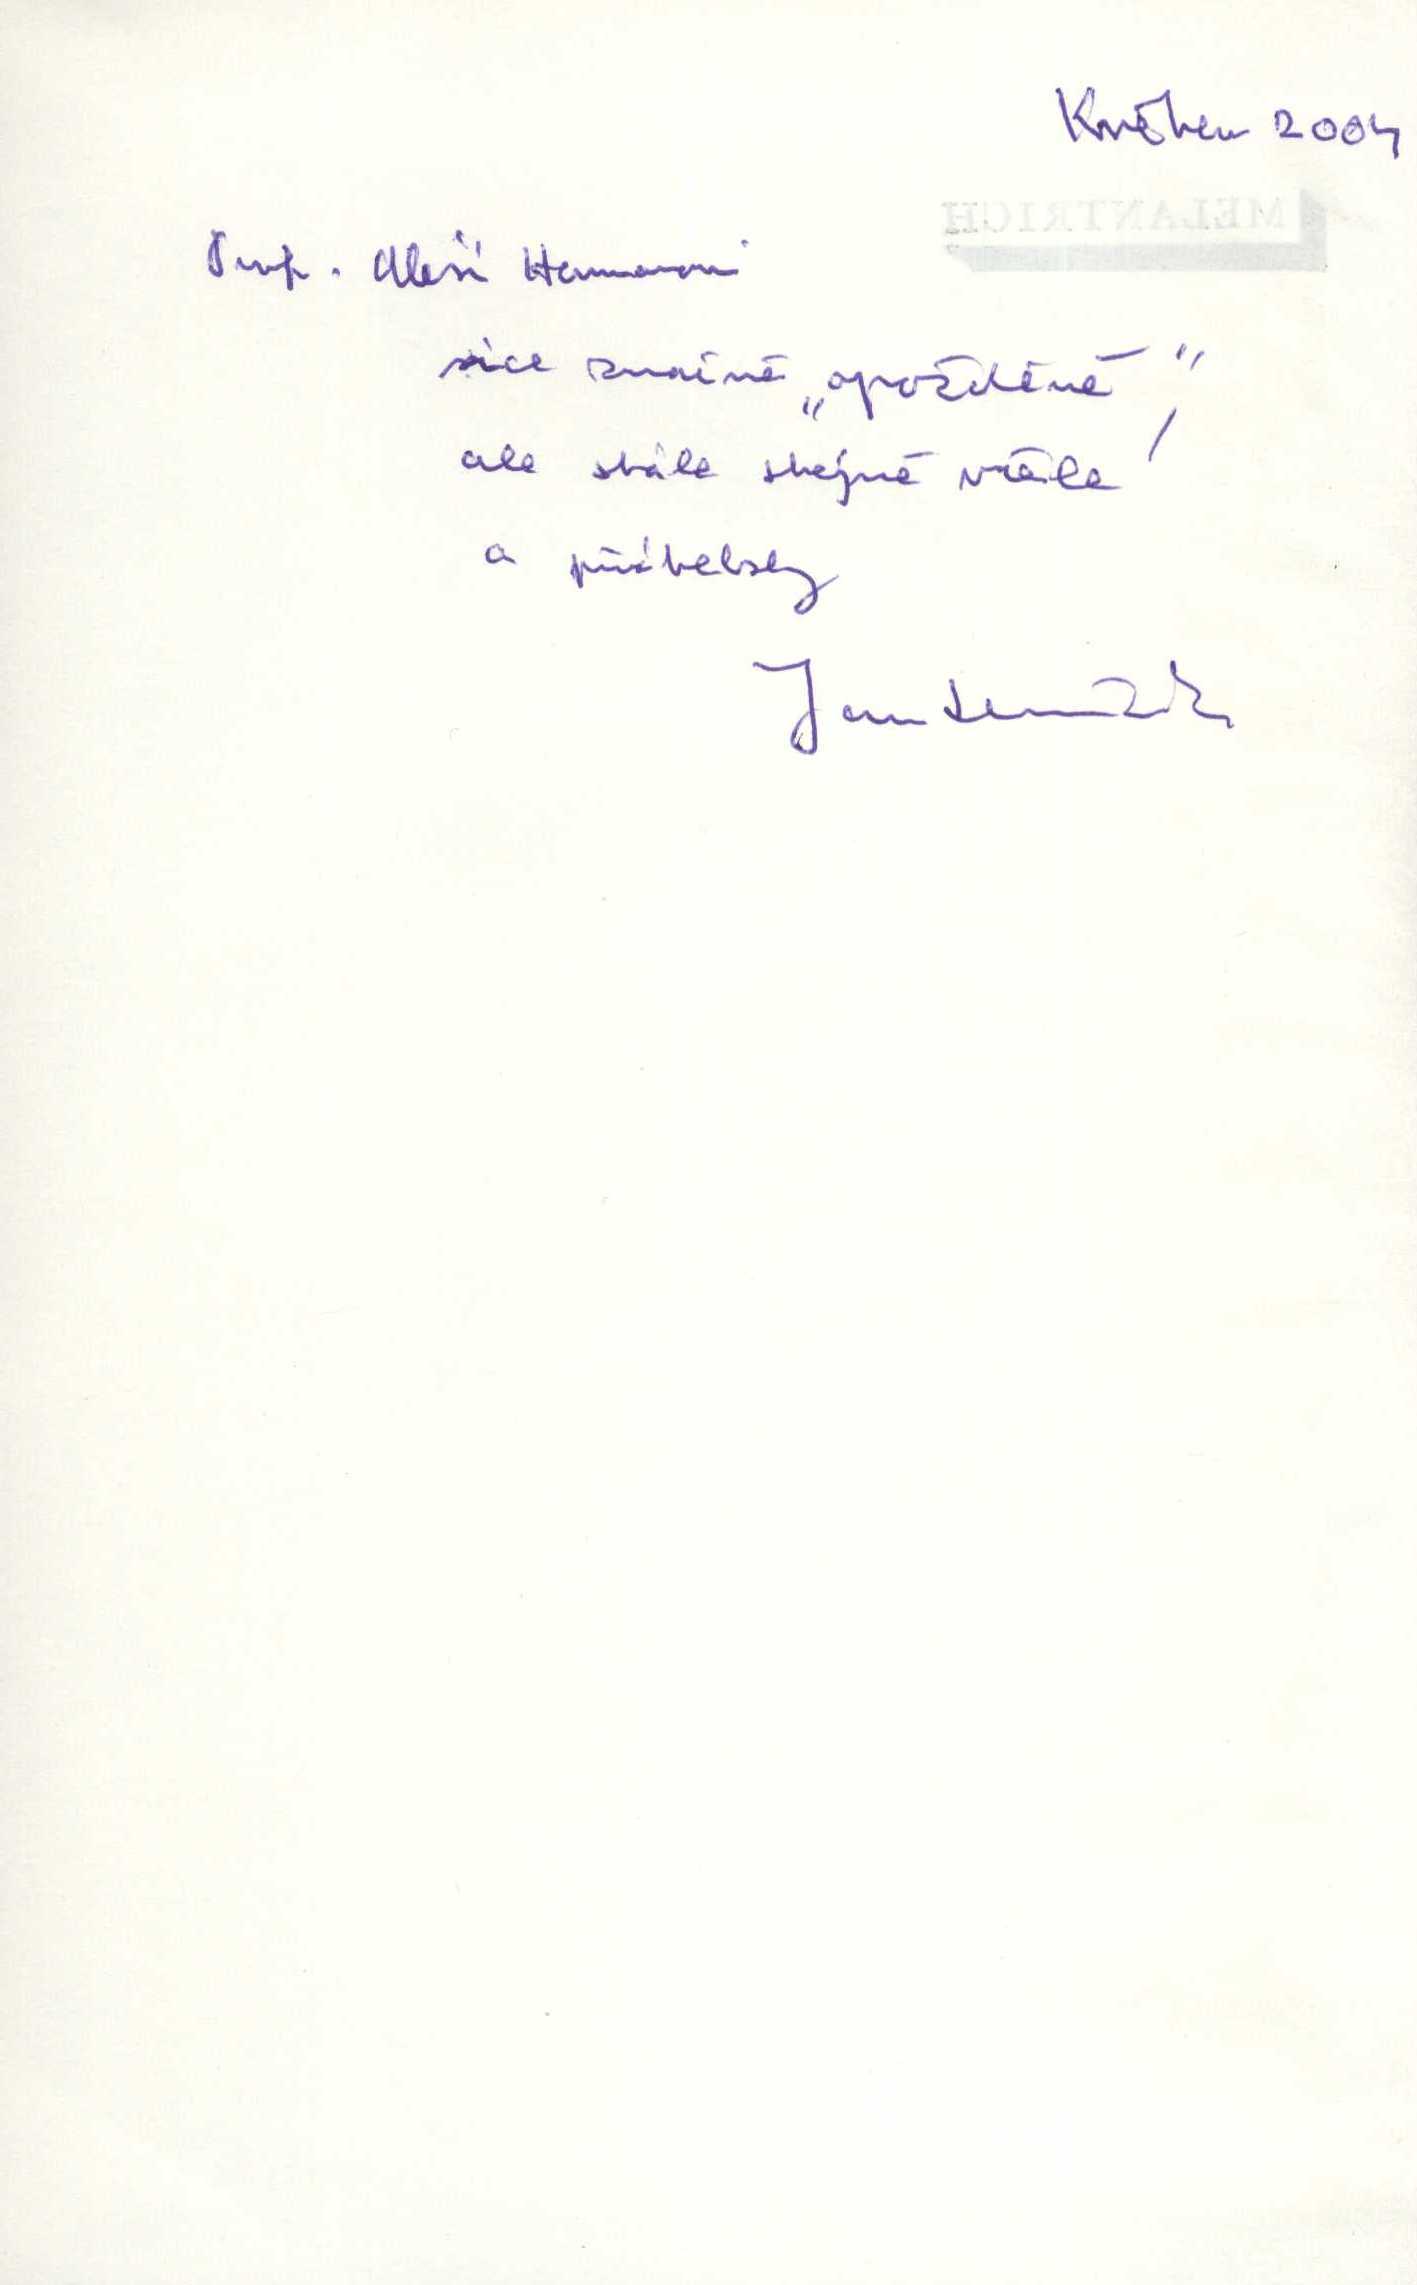 Květen 2004
MELANTRICH
Prof. Aleši Hamanovi
sice značně „opožděně“,
ale stále stejně vřele
a přátelsky
Jan